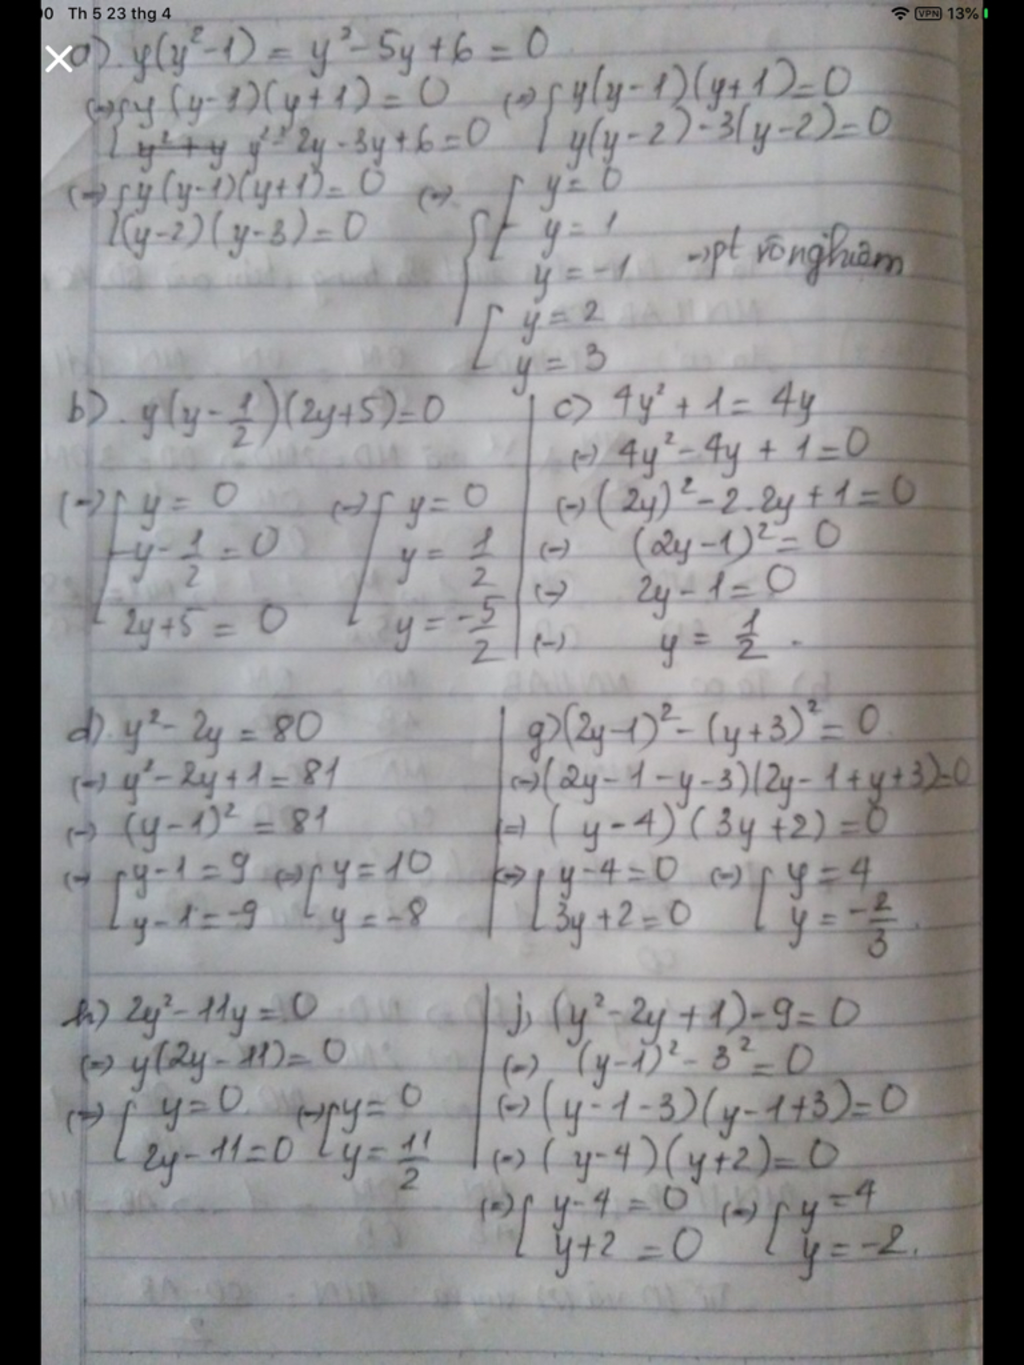 00 Th 5 23 thg 4 VPN 13%
a) y(y²-1) = y²-5y+6 = 0
(=) { y(y-1)(y+1) = 0 (=) { y(y-1)(y+1)=0
y²-2y-3y+6=0 y(y-2)-3(y-2)=0
(=) { y(y-1)(y+1)=0 (=) [ y=0
(y-2)(y-3)=0 y=1
y=-1 =>pt vô nghiệm
[ y=2
y=3
b) y(y-1/2)(2y+5)=0
(=) [ y=0 (=) [ y=0
y-1/2=0 y=1/2
2y+5=0 y=-5/2
c) 4y²+1=4y
(=) 4y²-4y+1=0
(=) (2y)²-2.2y+1=0
(=) (2y-1)²=0
(=) 2y-1=0
(=) y=1/2.
d) y²-2y=80
(=) y²-2y+1=81
(=) (y-1)²=81
(=) [ y-1=9 (=) [ y=10
y-1=-9 y=-8
g) (2y-1)²-(y+3)²=0
(=) (2y-1-y-3)(2y-1+y+3)=0
(=) (y-4)(3y+2)=0
(=) [ y-4=0 (=) [ y=4
3y+2=0 y=-2/3.
h) 2y²-11y=0
(=) y(2y-11)=0
(=) [ y=0 (=) [ y=0
2y-11=0 y=11/2
j, (y²-2y+1)-9=0
(=) (y-1)²-3²=0
(=) (y-1-3)(y-1+3)=0
(=) (y-4)(y+2)=0
(=) [ y-4=0 (=) [ y=4
y+2=0 y=-2.